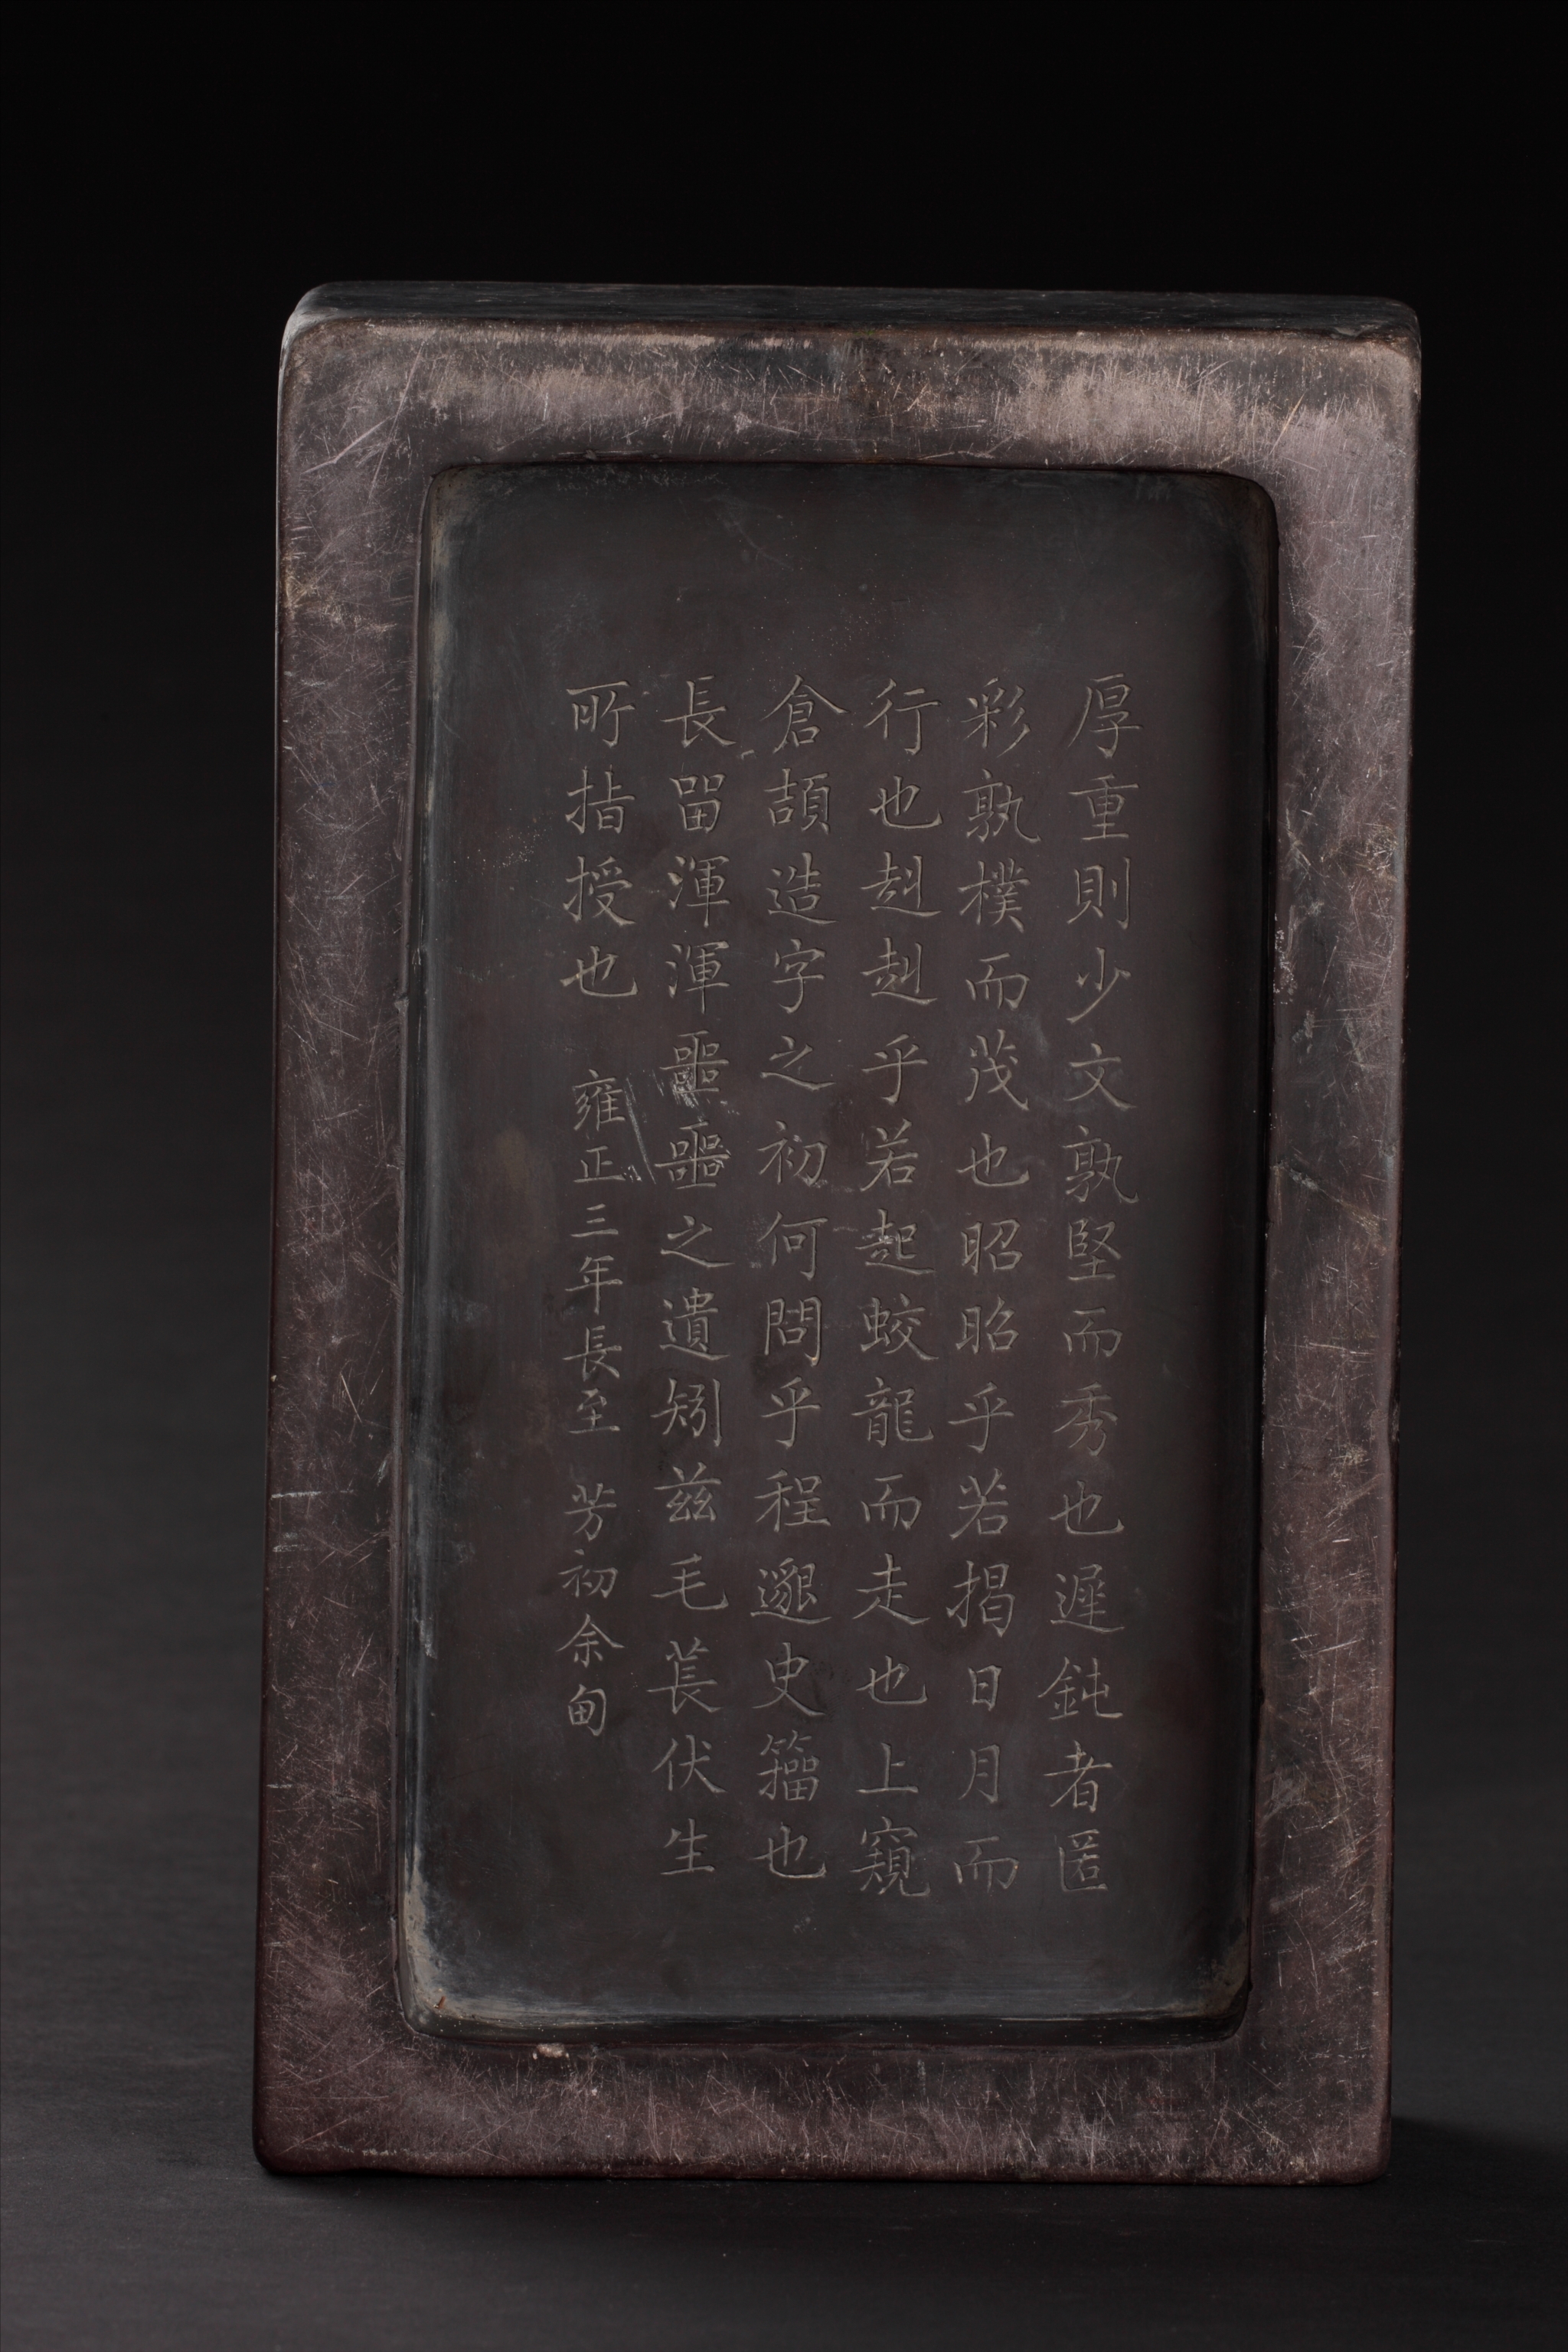 厚重則少文孰堅而秀也遲鈍者匿
彩孰樸而茂也昭昭乎若揭日月而
行也赳赳乎若起蛟龍而走也上窺
倉頡造字之初何問乎程邈史籀也
長留渾渾噩噩之遺矧茲毛萇伏生
所指授也 雍正三年長至 芳初余甸